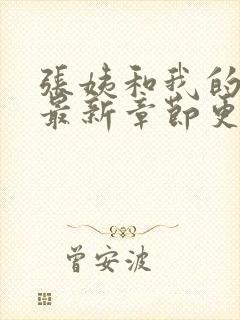 張姨和我的
最新章節更
曾安波